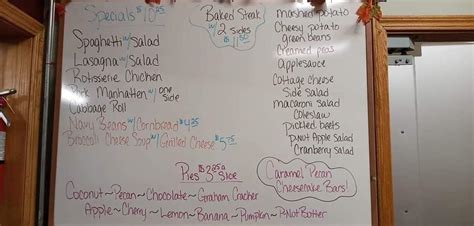 Specials $10.25
Spaghetti w/ Salad
Lasagna w/ Salad
Rotisserie Chicken
Pork Manhatten w/ one side
Cabbage Roll
Navy Beans w/ Cornbread $4.25
Broccoli Cheese Soup w/ Grilled Cheese $5.75
Baked Steak
w/ 2 sides
mashed potato
Cheesy potato
green beans
Creamed peas
applesauce
Cottage cheese
Side salad
macaroni salad
Coleslaw
Pickled beets
P-Nut Apple Salad
Cranberry Salad
Pies $3.25 a Slice
Coconut ~ Pecan ~ Chocolate ~ Graham Cracker
Apple ~ Cherry ~ Lemon ~ Banana ~ Pumpkin ~ P-Nut Butter
Caramel Pecan
Cheesecake Bars!